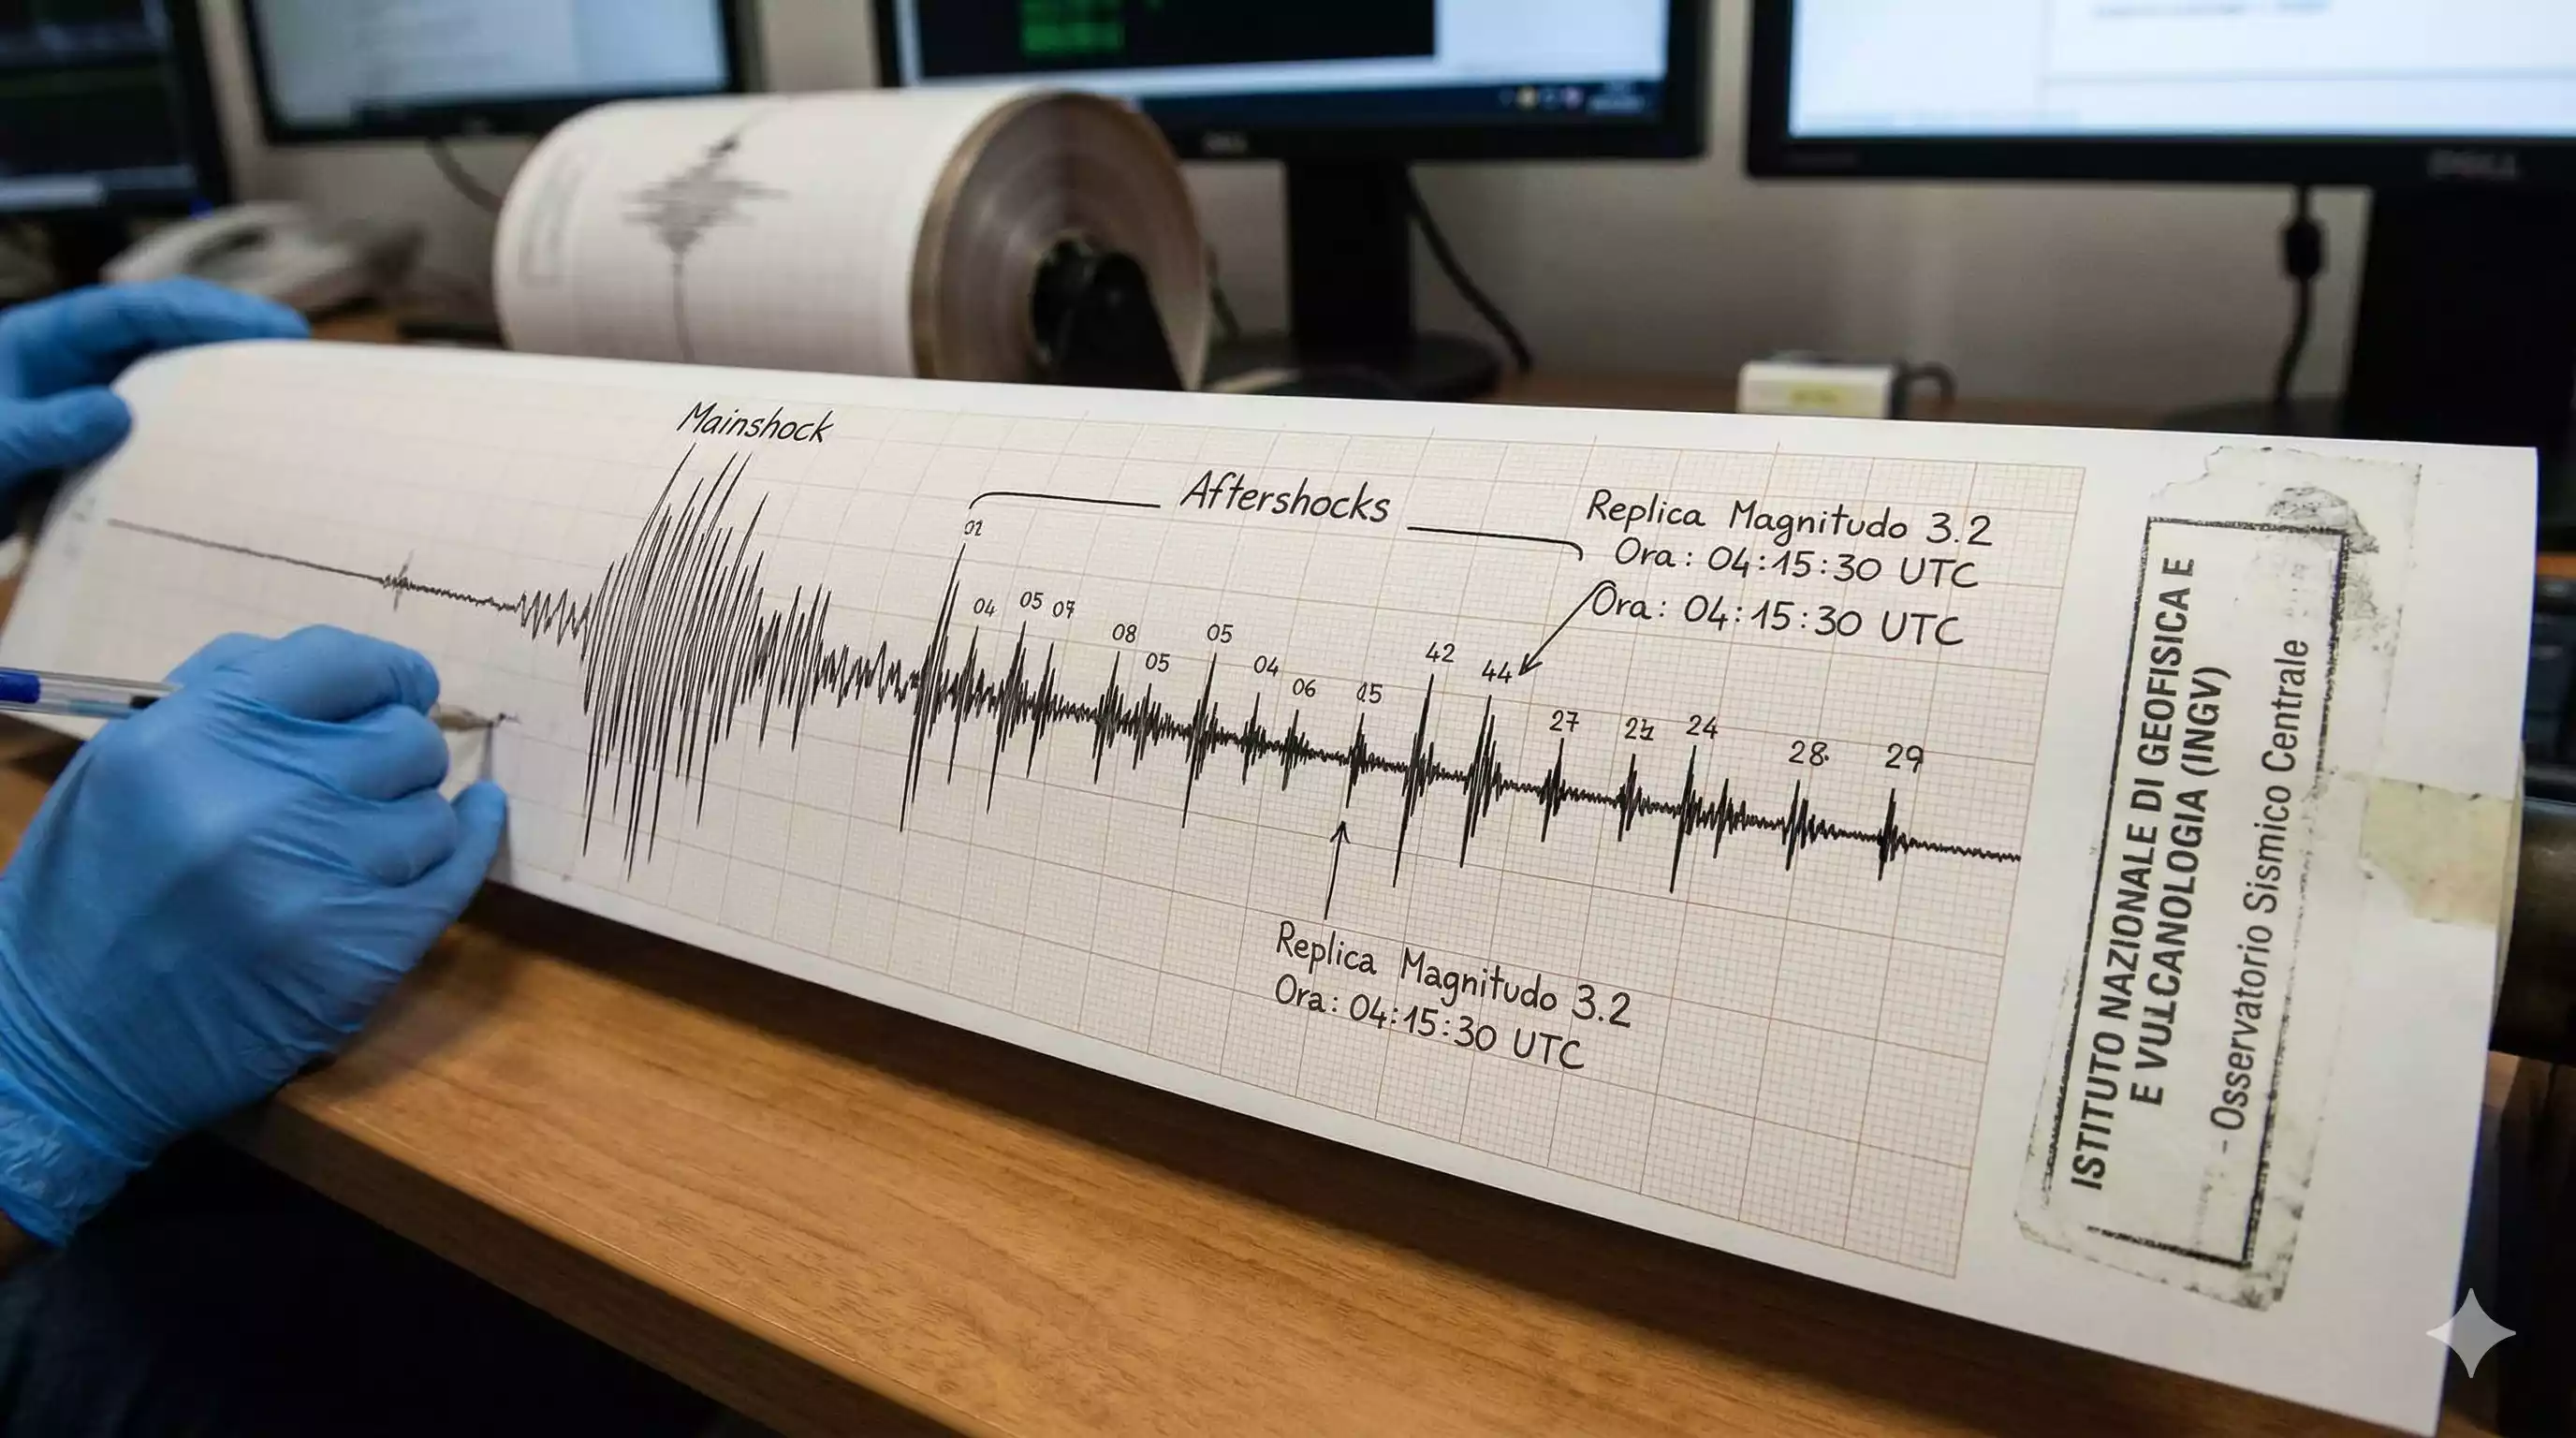 Mainshock
Aftershocks
Replica Magnitudo 3.2
Ora: 04:15:30 UTC
Ora: 04:15:30 UTC
02
04 05 07
08
05
05
04
06
15
42
44
27
24
28
29
Replica Magnitudo 3.2
Ora: 04:15:30 UTC
ISTITUTO NAZIONALE DI GEOFISICA E
E VULCANOLOGIA (INGV)
- Osservatorio Sismico Centrale
DELL